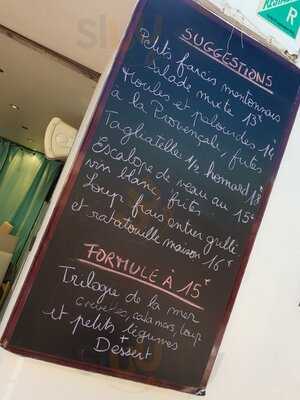 SUGGESTIONS
Petits farcis mentonnais
salade mixte 13€
Moules et palourdes 14€
à la Provençale, frites
Tagliatelle 1/2 homard 18€
Escalope de veau au 15€
vin blanc, frites
Loup frais entier grillé
et ratatouille maison 16€
FORMULE À 15€
Trilogie de la mer
crevettes, calamars, loup
et petits légumes
+
Dessert
R